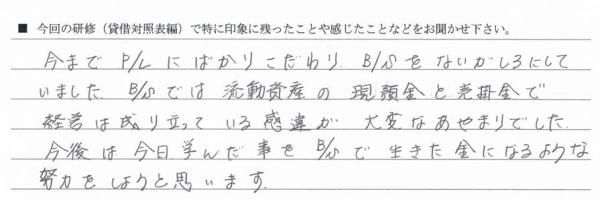 ■ 今回の研修（貸借対照表編）で特に印象に残ったことや感じたことなどをお聞かせ下さい。
今までP/Lにばかりこだわり、B/Sをないがしろにして
いました。B/Sでは流動資産の現預金と売掛金で
経営は成り立っている感違が大変なあやまりでした。
今後は今日学んだ事をB/Sで生きた金になるような
努力をしようと思います。